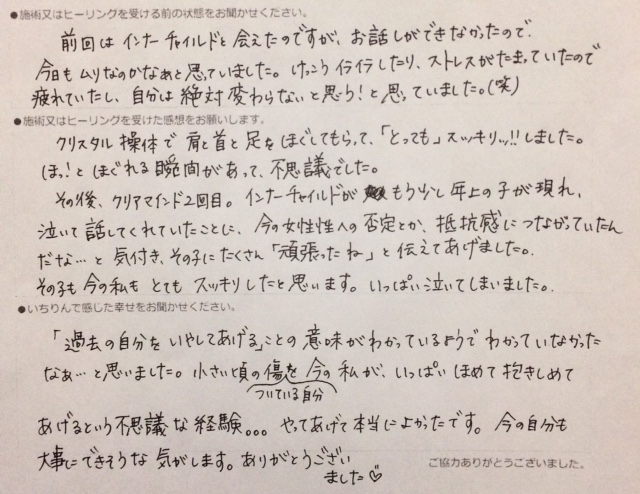 ●施術又はヒーリングを受ける前の状態をお聞かせください。
前回はインナーチャイルドと会えたのですが、お話しができなかったので、
今日もムリなのかなぁと思っていました。けっこうイライラしたり、ストレスがたまっていたので
疲れていたし、自分は絶対変わらないと思う!と思っていました。(笑)
●施術又はヒーリングを受けた感想をお願いします。
クリスタル操体で肩と首と足をほぐしてもらって、「とっても」スッキリッ!!しました。
ほっ!とほぐれる瞬間があって、不思議でした。
その後、クリアマインド2回目。インナーチャイルドがもう少し年上の子が現れ、
泣いて話してくれていたことに、今の女性性への否定とか、抵抗感につながっていたん
だな…と気付き、その子にたくさん「頑張ったね」と伝えてあげました。
その子も今の私もとてもスッキリしたと思います。いっぱい泣いてしまいました。
●いちりんで感じた幸せをお聞かせください。
「過去の自分をいやしてあげる」ことの意味がわかっているようでわかっていなかった
なぁ…と思いました。小さい頃の傷を今の私が、いっぱいほめて抱きしめて
ついている自分
あげるという不思議な経験。。。やってあげて本当によかったです。今の自分も
大事にできそうな気がします。ありがとうござい
ました♡
ご協力ありがとうございました。